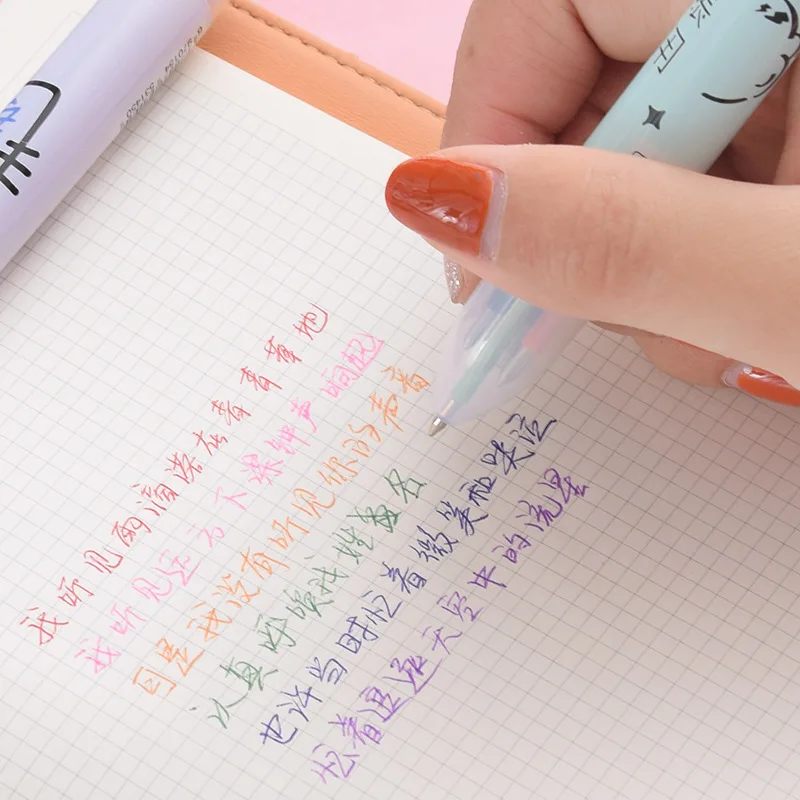 我听见雨滴落在青青草地
我听见远方下课钟声响起
可是我没有听见你的声音
认真呼唤我姓名
也许当时忙着微笑和哭泣
忙着追逐天空中的流星